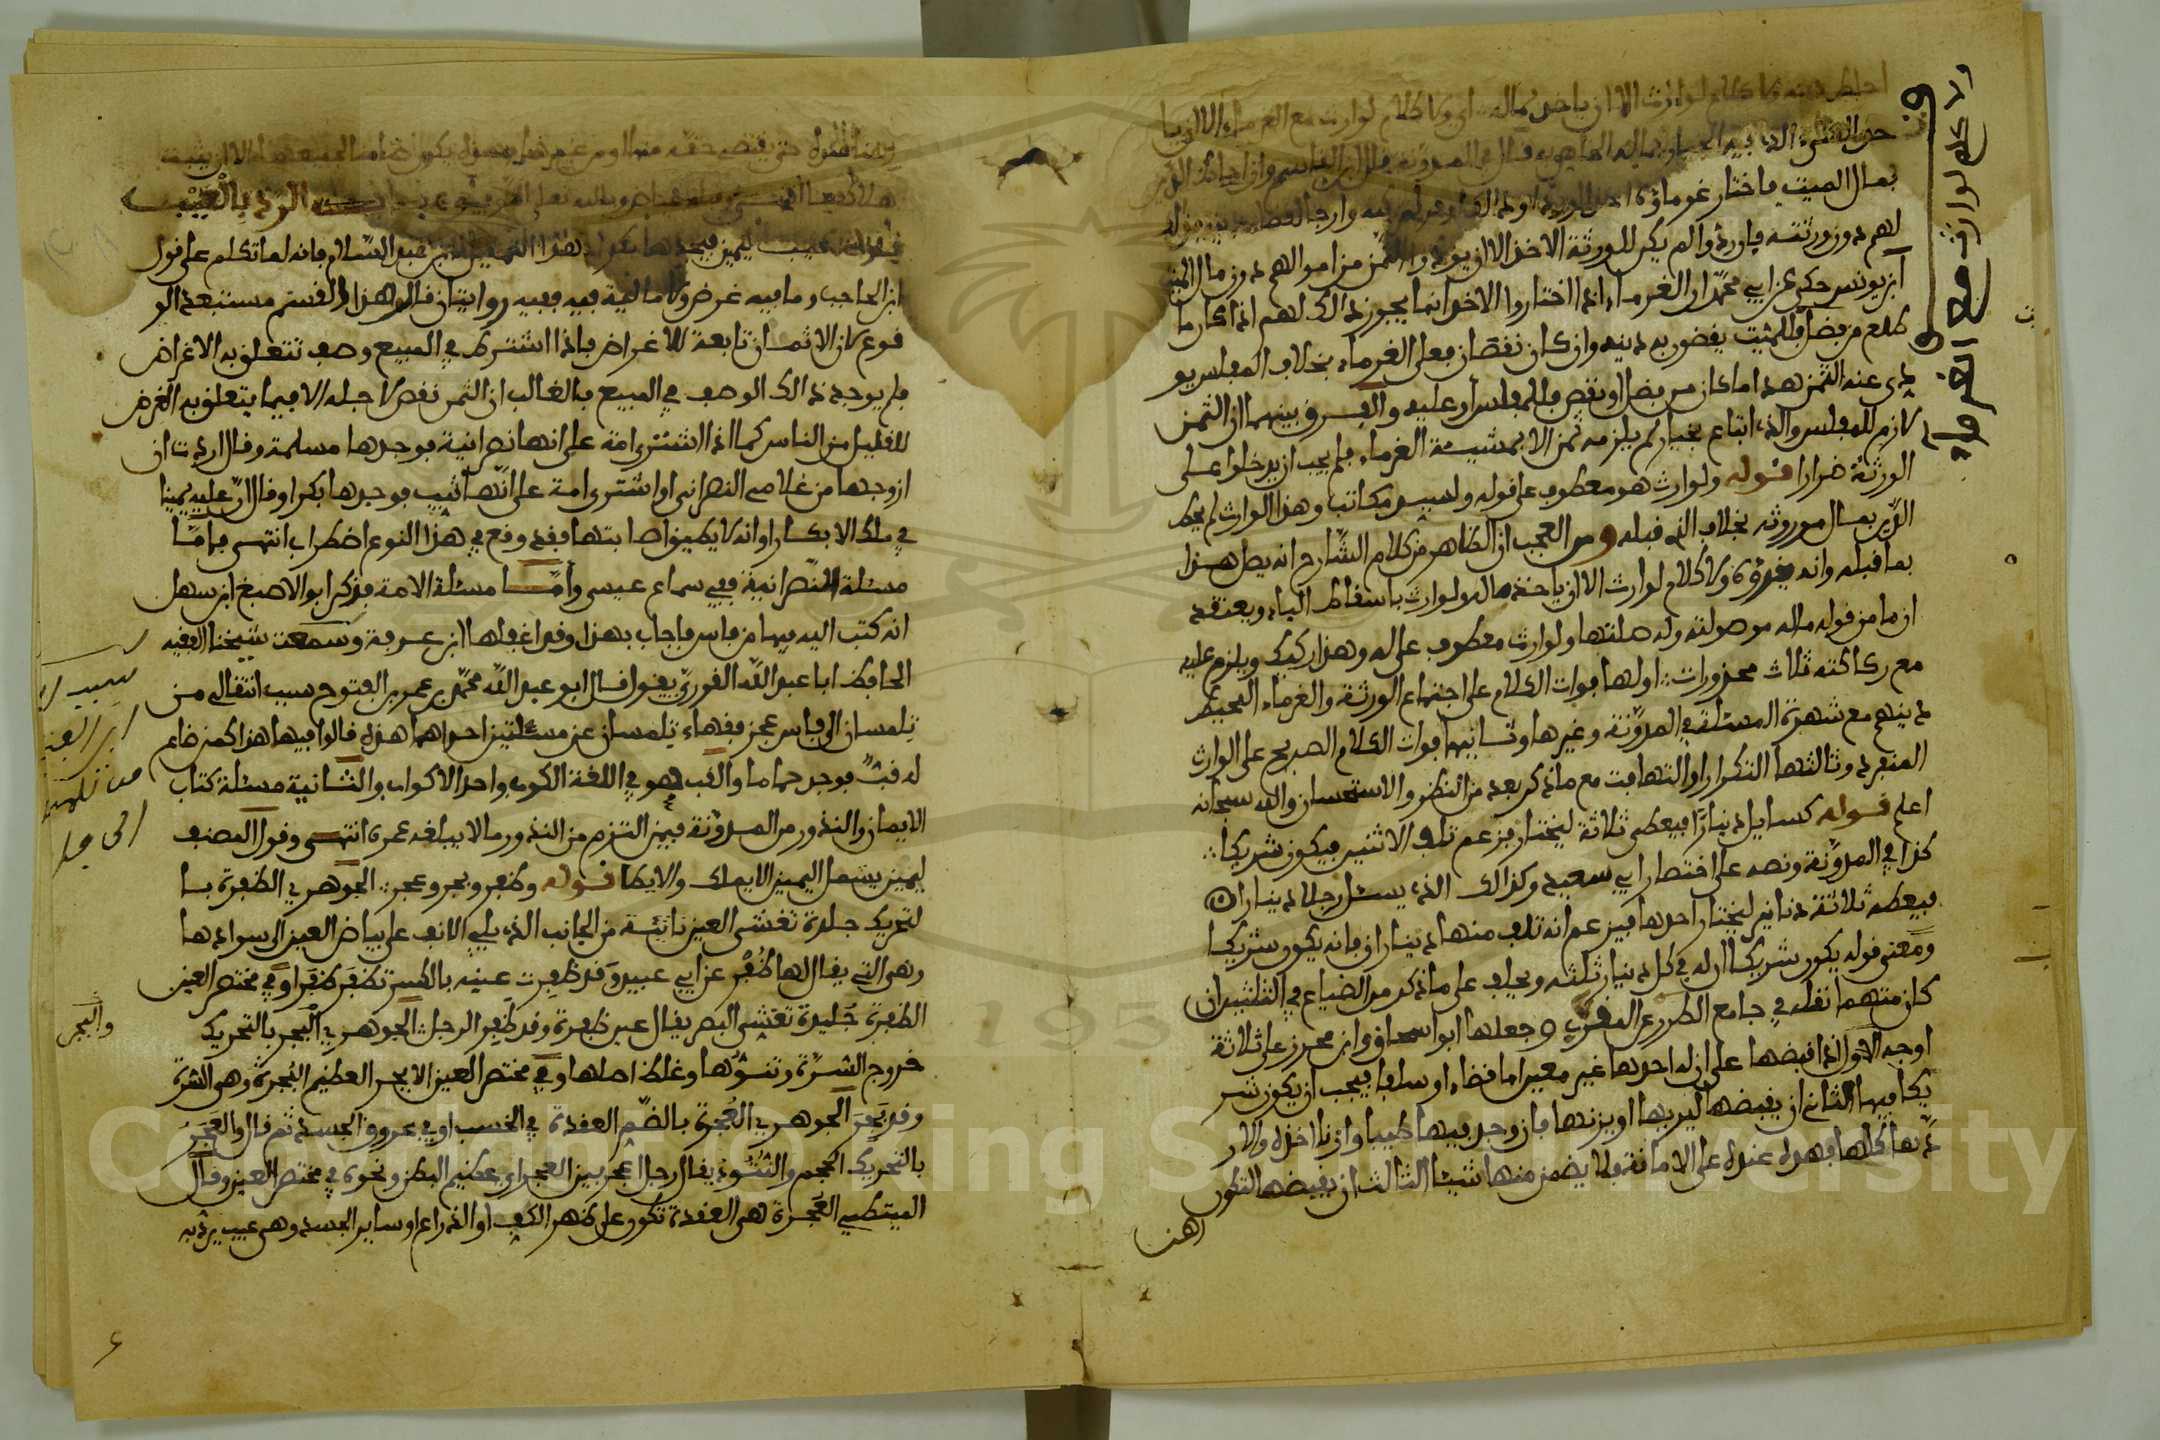 احاط دينه ولا كلام لوارث الا ان ياخذ بماله اي ولا كلام لوارث مع الغرماء الا ان يا
خذ الشيء الذي فيه الخيار بماله قال في المدونة قال ابن القاسم وان احاط الدين
بمال الميت فاختار غرماؤه اخذ او رد وذلك
لهم دون ورثته فان ردوا لم يكن للورثة الاخذ الا ان يودوا الثمن من اموالهم دون مال الميت
ابن يونس حكي عن ابي محمد ان الغرماء اذا اختاروا الاخذ انما يجوز ذلك لهم اذا كان ما
طلع من فضل فللميت يقضون به دينه وان كان نقصان فعلى الغرماء بخلاف المفلس يو
دي عنه الثمن هذا ما كان من فضل او نقص فللمفلس او عليه والفرق بينهما ان الثمن
لازم للمفلس والذي ابتاع بخيار لم يلزمه ثمن الا بمشيئة الغرماء فلم يجب ان يدخلوا على
الورثة ضررا قوله ولوارث هو معطوف على قوله ولسيد مكاتب وهذا الوارث لم يحط
الدين بمال موروثه بخلاف الذي قبله ومن العجب ان الظاهر من كلام الشارح انه يصل هذا
بما قبله وانه يقرؤه ولا كلام لوارث الا ان ياخذ ماله ولوارث باسقاط الباء ويعتقد
ان ما من قوله ماله موصولة وله صلتها ولوارث معطوف على له وهذا ركيك ويلزم عليه
مع ركاكته ثلاث محذورات اولها فوات الكلام على اجتماع الورثة والغرماء المحيط
دينهم مع شهرة المسئلة في المدونة وغيرها وثانيها فوات الكلام الصريح على الوارث
المنفرد وثالثها التكرار او التهافت مع ما ذكر بعد من النظر والاستحسان والله سبحانه
اعلم قوله كسايل دينارا فيعطى ثلاثة ليختار فزعم تلف الاثنين فيكون شريكا
كذا في المدونة ونصه على اختصار ابي سعيد وكذلك الذي يسئل رجلا دينارا
فيعطيه ثلاثة دنانير ليختار احدها فيزعم انه تلف منها ديناران فانه يكون شريكا
ومعنى قوله يكون شريكا ان له في كل دينار ثلثه ويحلف على ما ذكر من الضياع في الثلثين ان
كان متهما نقله في جامع الطرر عن المغربي وجعلها ابو اسحاق وابن محرز على ثلاثة
اوجه الاول اذا قبضها على ان له احدها غير معين اما قضاء او سلفا فيجب ان يكون شر
يكا فيها الثاني ان يقبضها ليريها او يزنها فان وجد فيها طيبا وازنا اخذه والا ر
دها كلها فهذه عنده على الامانة ولا يضمن منها شيئا الثالث ان يقبضها لتكون
رهنا
ولا كلام لوارث مع الغرماء
عنده حتى يقتضي حقه منها
الرد بالعيب
ابن الحاجب وما فيه غرض ولا مالية فيه ففيه روايتان قالوا هذا القسم مستبعد الو
قوع لان الاثمان تابعة للاغراض فاذا اشترط في المبيع وصف تتعلق به الاغراض
فلم يوجد ذلك الوصف في المبيع فالغالب ان الثمن نقص لاجله الا فيما يتعلق به الغرض
للقليل من الناس كما اذا اشترى امة على انها نصرانية فوجدها مسلمة وقال اردت ان
ازوجها من غلامي النصراني او اشترى امة على انها ثيب فوجدها بكرا وقال ان عليه يمينا
في ملك الابكار او انه لا يطيق اصابتها فقد وقع في هذا النوع اضطراب انتهى فاما
مسئلة النصرانية ففي سماع عيسى واما مسئلة الامة فذكر ابو الاصبغ ابن سهل
انه كتب اليه فيها من فاس فاجاب بهذا وقد اغفلها ابن عرفة وسمعت شيخنا الفقيه
الحافظ ابا عبد الله القوري يقول قال ابو عبد الله محمد بن عمر بن الفتوح سبب انتقالي من
تلمسان الى فاس عجز فقهاء تلمسان عن مسئلتين احداهما هذه قالوا فيها هذا كمن
فوجد حماما والقب هو في اللغة الكوب واحد الاكواب والثانية مسئلة كتاب
الايمان والنذور من المدونة فيمن التزم من النذور ما لا يبلغه عمره انتهى وقول المصنف
ليمين يشمل اليمين الايملك والايطا قوله وظفر وبجر وعجر الجوهري الظفرة با
لتحريك جلدة تغشى العين ناتئة من الجانب الذي يلي الانف على بياض العين الى سوادها
وهي التي يقال لها ظفر عن ابي عبيد وقد ظفرت عينه بالكسر تظفر ظفرا وفي مختصر العين
الظفرة جليدة تغشي البصر يقال عين ظفرة وقد ظفر الرجل الجوهري البجر بالتحريك
خروج السرة ونتوها وغلظ اصلها وفي مختصر العين الابجر العظيم البجرة وهي السرة
وقد بجر الجوهري العجرة بالضم العقدة في الخشب او في عروق الجسد ثم قال والعجر
بالتحريك الحجم والنتو يقال رجل اعجر بين العجر اي عظيم البطن ونحوه في مختصر العين وقال
المتيطي العجرة هي العقدة تكون على ظهر الكف او الذراع او ساير الجسد وهي عيب يرد به
سبب
ابن الفتوح
من تلمسان
الى فاس
والبجر